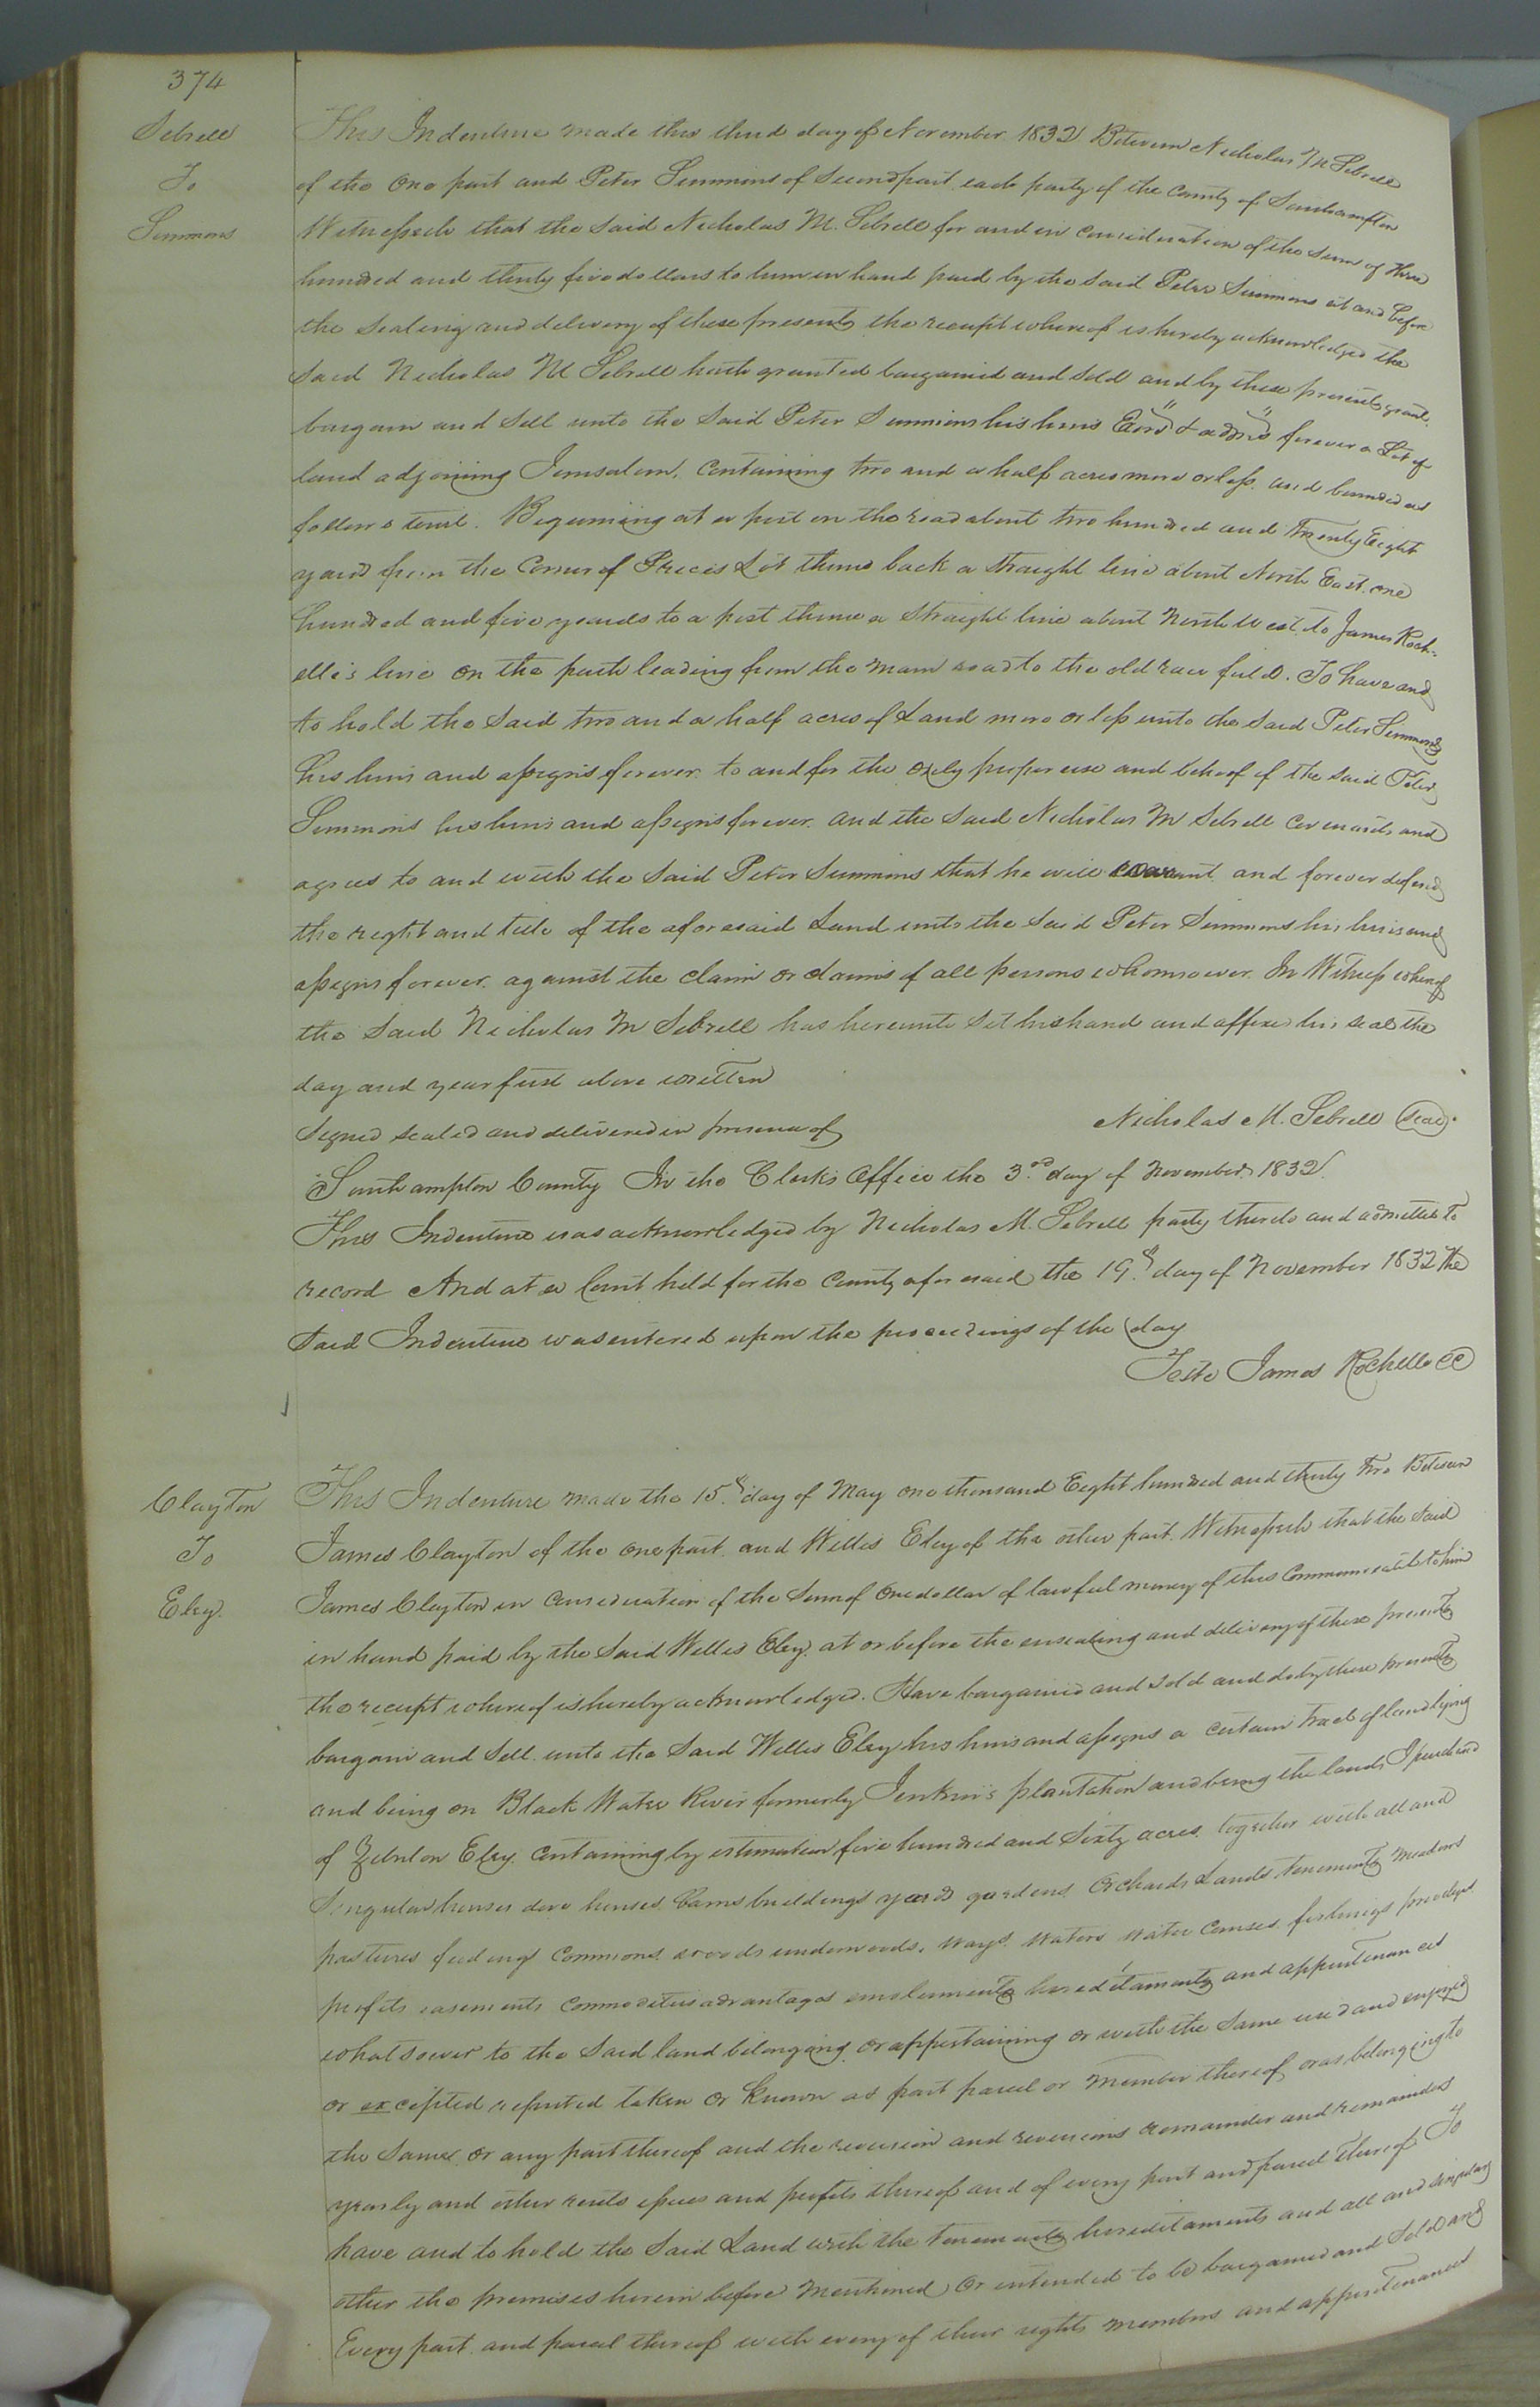 374
Sebrell
To
Simmons
This Indenture made this third day of November 1832 Between Nicholas M Sebrell
of the One part and Peter Simmons of Second part each party of the County of Southampton
Witnesseth that the said Nicholas M. Sebrell for and in Consideration of the sum of three
hundred and thirty five dollars to him in hand paid by the said Peter Simmons at and before
the Sealing and delivery of these presents the receipt whereof is hereby acknowledged the
said Nicholas M Sebrell hath granted bargained and Sold and by these presents grant,
bargain and Sell unto the Said Peter Simmons his heirs Exors & admrs forever a Lot of
land adjoining Jerusalem, Containing two and a half acres more or less and bounded as
follows to wit. Beginning at a post on the road about two hundred and Twenty Eight
yards from the Corner of Prices Lot thence back a straight line about North East one
hundred and five yards to a post thence a Straight line about North West to James Roch-
elle's line on the path leading from the main road to the old race field. To have and
to hold the Said two and a half acres of Land more or less unto the said Peter Simmons
his heirs and assigns forever to and for the only proper use and behoof of the said Peter
Simmons his heirs and assigns forever. and the said Nicholas M Sebrell Covenants and
agrees to and with the Said Peter Simmons that he will warrant and forever defend
the right and title of the aforesaid Land unto the Said Peter Simmons his heirs and
assigns forever against the claim or claims of all persons whomsoever. In Witness whereof
the Said Nicholas M Sebrell has hereunto Set his hand and affixed his seal the
day and year first above written
Signed sealed and delivered in presence of
Nicholas M. Sebrell Seal.
Southampton County In the Clerk's Office the 3rd day of November 1832.
This Indenture was acknowledged by Nicholas M. Sebrell party thereto and admitted to
record And at a Court held for the County aforesaid the 19th day of November 1832 the
Said Indenture was entered upon the proceedings of the day
Teste James Rochelle CC
Clayton
To
Eley.
This Indenture made the 15th day of May one thousand Eight hundred and thirty two Between
James Clayton of the one part. and Willis Eley of the other part. Witnesseth that the said
James Clayton in Consideration of the Sum of one dollar of lawful money of this Commonwealth to him
in hand paid by the Said Willis Eley. at or before the ensealing and delivery of these presents
the receipt whereof is hereby acknowledged. Have bargained and sold and do by these presents
bargain and Sell unto the Said Willis Eley his heirs and assigns a certain tract of land lying
and being on Black Water River formerly Jenkins's plantation and being the lands I purchased
of Zebulon Eley. Containing by estimation five hundred and Sixty acres. together with all and
Singular houses dove houses. barns buildings yards gardens Orchards Lands tenements meadows
pastures feedings Commons. woods underwoods, ways. waters water Courses. fishings priviledges
profits easements Commodities advantages emoluments hereditaments and appurtenances
whatsoever to the Said land belonging or appertaining or with the Same used and enjoyed
or excepted reputed taken or Known as part parcel or member thereof or as belonging to
the Same. or any part thereof and the reversion and reversions remainder and remainders
yearly and other rents issues and profits thereof and of every part and parcel thereof. To
have and to hold the Said Land with the tenements hereditaments and all and singular
other the premises herein before mentioned or intended to be bargained and Sold and
Every part. and parcel thereof with every of their rights members and appurtenances